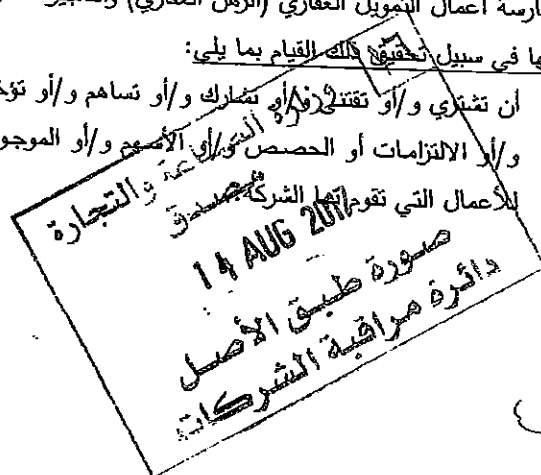 رسة أعمال التمويل العقاري (الرهن العقاري) و
ها في سبيل تحقيق ذلك القيام بما يلي:
أن تشتري و/أو تقتني و/أو تشارك و/أو تساهم و/أو
و/أو الالتزامات أو الحصص و/أو الأسهم و/أو الموجو
للأعمال التي تقوم بها الشركة.
وزارة الصناعة والتجارة
مصدق
14 AUG 2017
صورة طبق الأصل
دائرة مراقبة الشركات